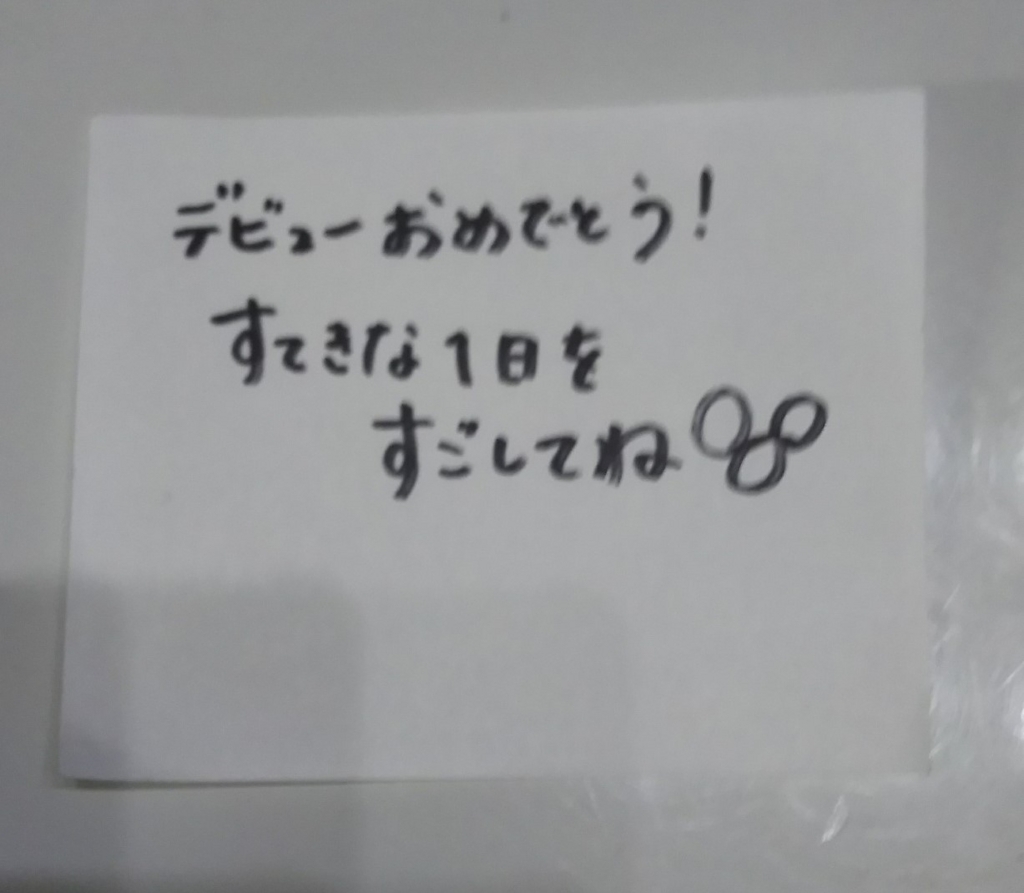 デビューおめでとう!
すてきな1日を
すごしてね